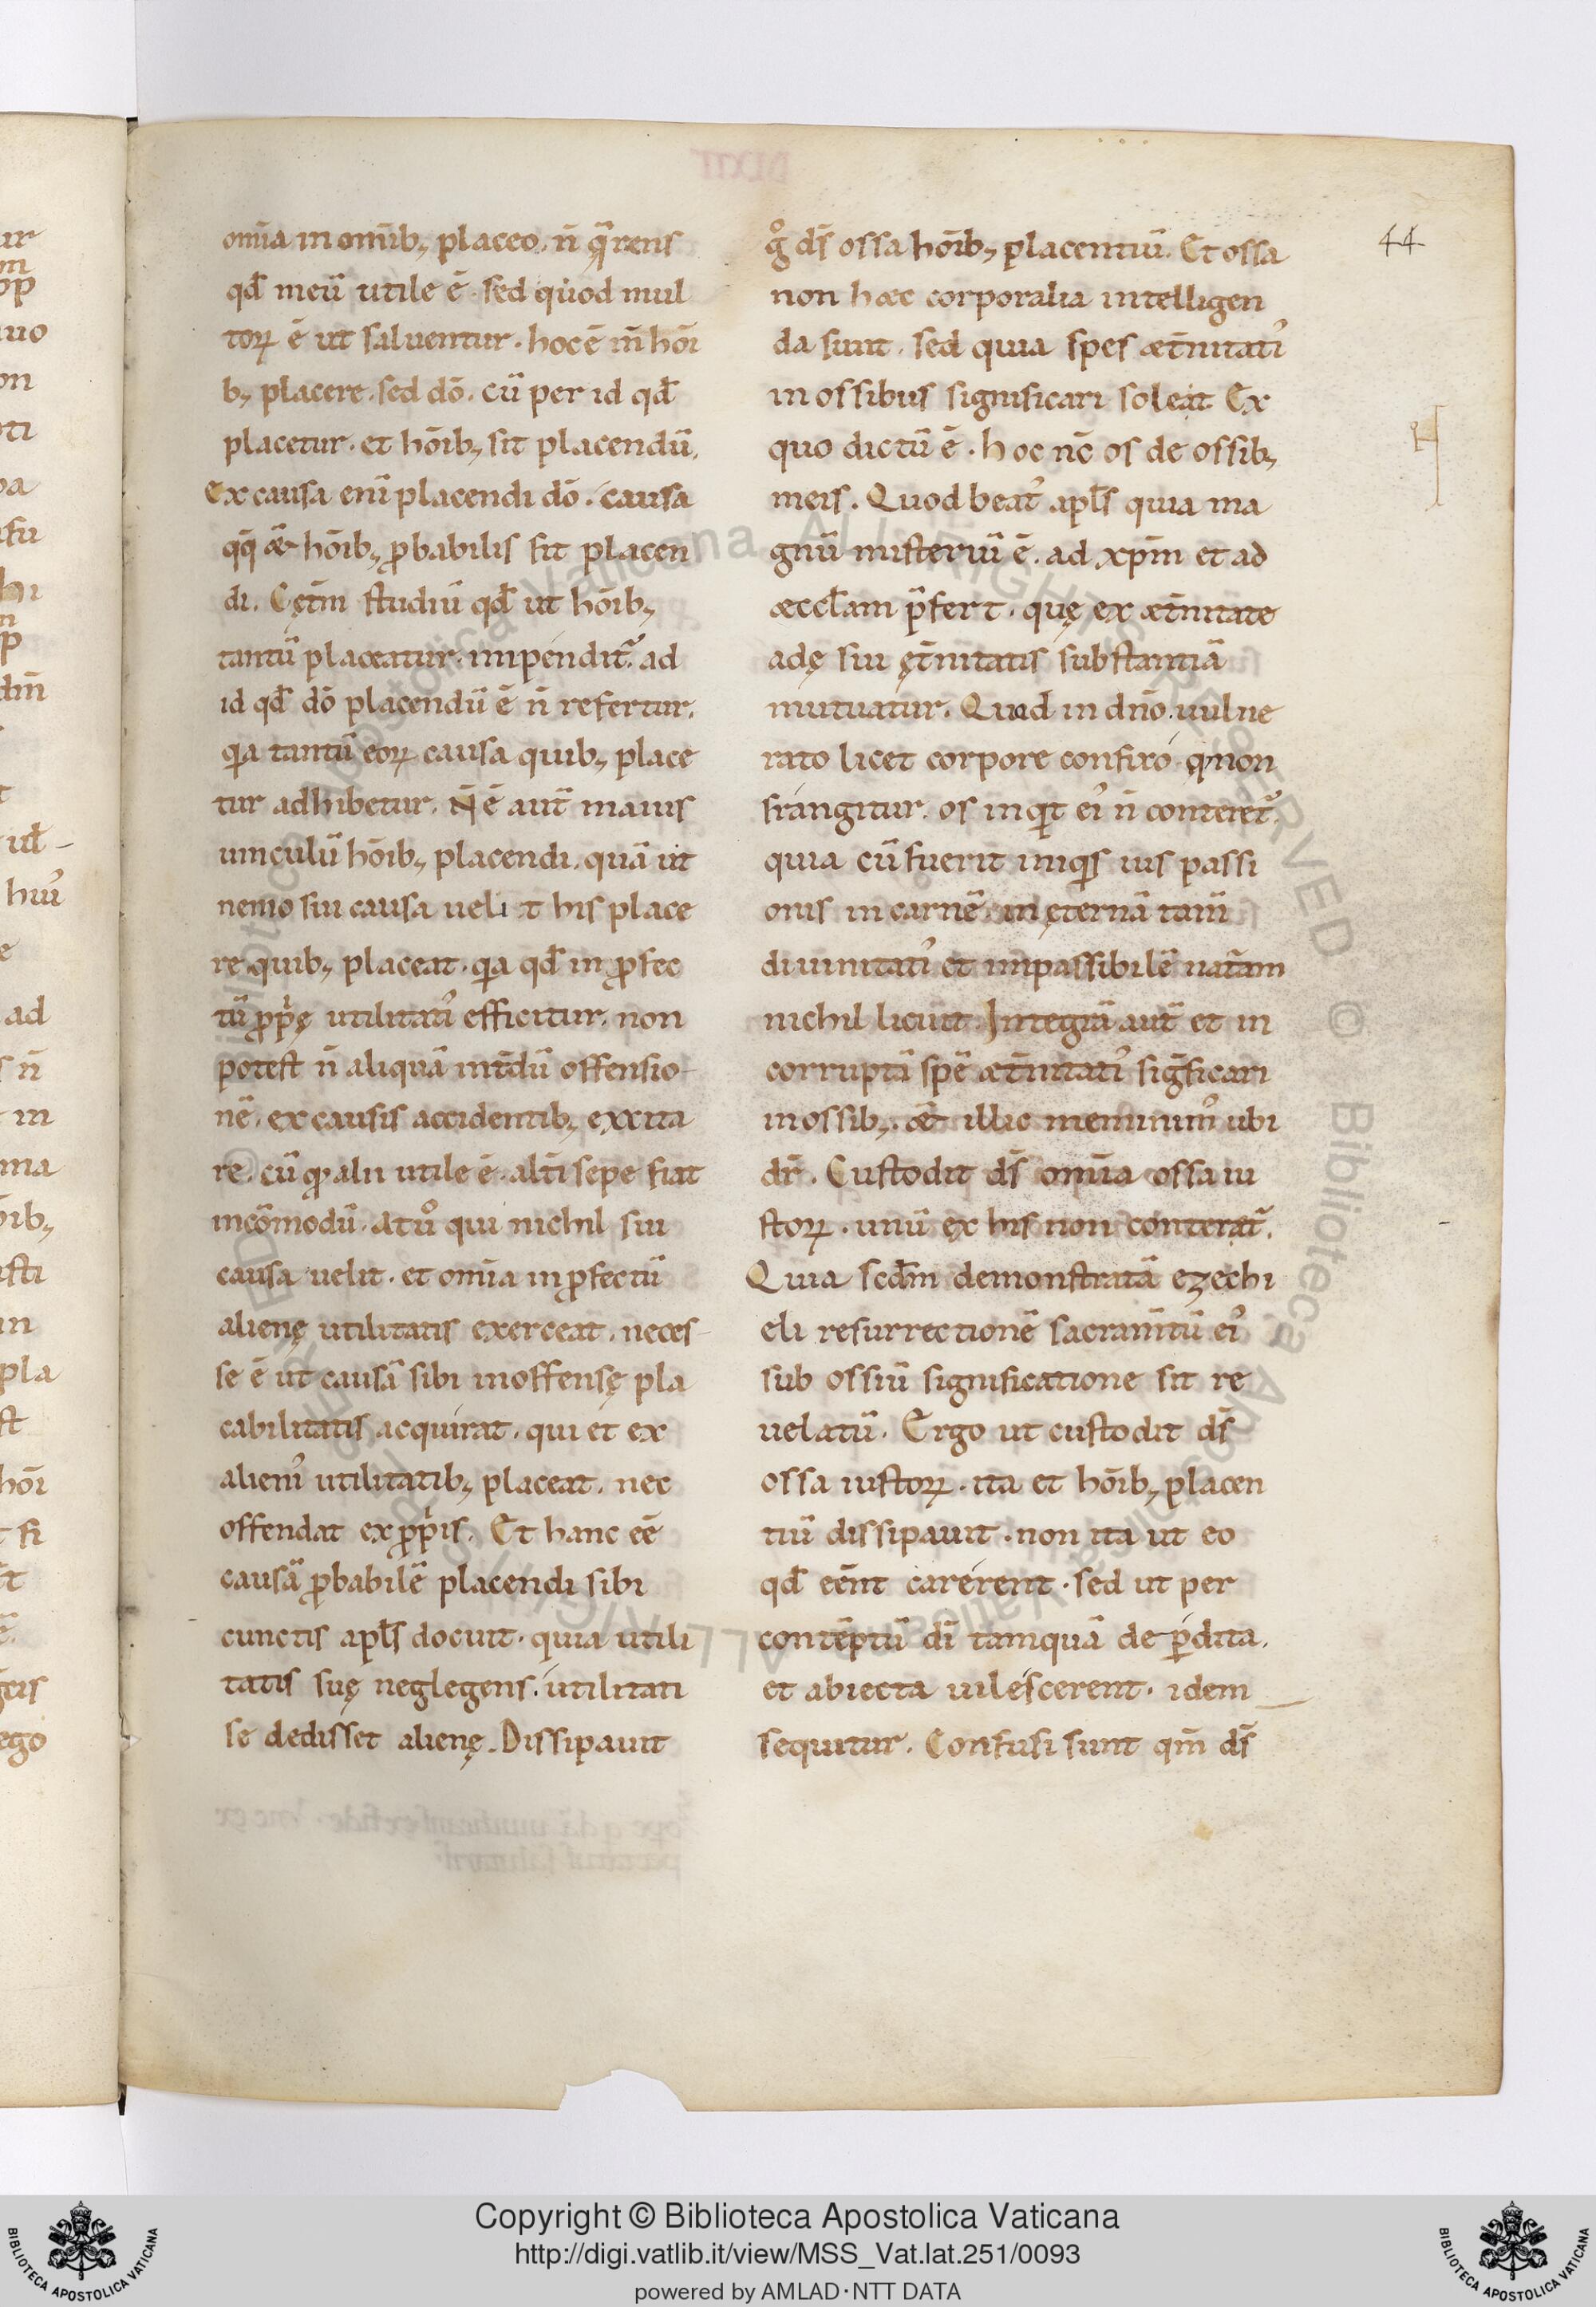 om̄ia in om̄ib; placeo. n̄ q̄rens
qđ meū utile ē. sed quod mul
toꝝ ē ut saluentur. hoc ē iñ hōi
b; placere. sed dō. cū per id qđ
placetur. et hōib; sit placendū.
Ex causa enī placendi dō. causa
qq̄ & hōib; ꝓbabilis fit placen
di. Cęt̄m studiū qđ ut hōib;
tantū placeatur. impendit᷑ ad
id qđ dō placendū ē n̄ refertur.
qa tantū eoꝝ causa quib; place
tur adhibetur. N̄ ē aut̄ maius
uinculū hōib; placendi. quā ut
nemo sui causa ueli t his place
re quib; placeat. qa qđ in ꝓfec
tū ꝓp̄ę utilitati᾽ efficitur. non
potest n̄ aliquā int̄dū offensio-
nē. ex causis accidentib; exxita
re. cū qđ alii utile ē. alt̄i sepe fiat
incōmodū. at uͦ qui nichil sui
causa uelit. et om̄ia in ꝓfectū
alienę utilitatis exerceat. neces-
se ē ut causā sibi inoffensę pla
cabilitatis acquirat. qui et ex
alieni᾽ utilitatib; placeat. nec
offendat ex ꝓp̄is. Et hanc eē
causā ꝓbabilē placendi sibi
cunctis apl̄s docuit. quia utili
tatis suę neglegens. utilitati
se dedisset alienę. Dissipauit
gͦ ds̄ ossa hōib; placentiū. Et ossa
non haec corporalia intelligen
da sunt. sed quia spes æt̄nitati᾽
in ossibus significari soleat Ex
quo dictū ē. hoc nc̄ os de ossib;
meis. Quod beat᾽ apl̄s quia ma
gnū misteriū ē. ad xp̄m et ad
æccl̄am p̄fert. quę ex æt̄nitate
adę siu ęt̄nitatis substantiā
mutuatur. Quod in dn̄o. uulne
rato licet corpore confixo. q non
frangitur. os inqt ei᾽ n̄ conteret᷑.
quia cū fuerit iniqs ius passi
onis in carnē. in ęternā tam̄
diuinitati᾽ et inpassibilē nat̄am
nichil licuit. Integrā aut̄ et in
corruptā spē æt̄nitati᾽ sig̅ficari
in ossib;. & illic meminim᾽ ubi
dr̄. Custodit ds̄ om̄ia ossa iu
stoꝝ. unū ex his non conterat᷑.
Quia scd̄m demonstratā ezechi
eli resurrectionē sacram̄tū ei᾽
sub ossiū significatione sit re
uelatū. Ergo ut custodit ds̄
ossa iustoꝝ. ita et hōib; placen
tiū dissipauit. non ita ut eo
qđ eēnt carerent. sed ut per
contēptū dī tamquā de ꝑdita.
et abiecta uilescerent. idem
sequitur. Confusi sunt qm̄ ds̄
44
Copyright © Biblioteca Apostolica Vaticana
http://digi.vatlib.it/view/MSS_Vat.lat.251/0093
powered by AMLAD·NTT DATA
BIBLIOTECA APOSTOLICA VATICANA
BIBLIOTECA APOSTOLICA VATICANA